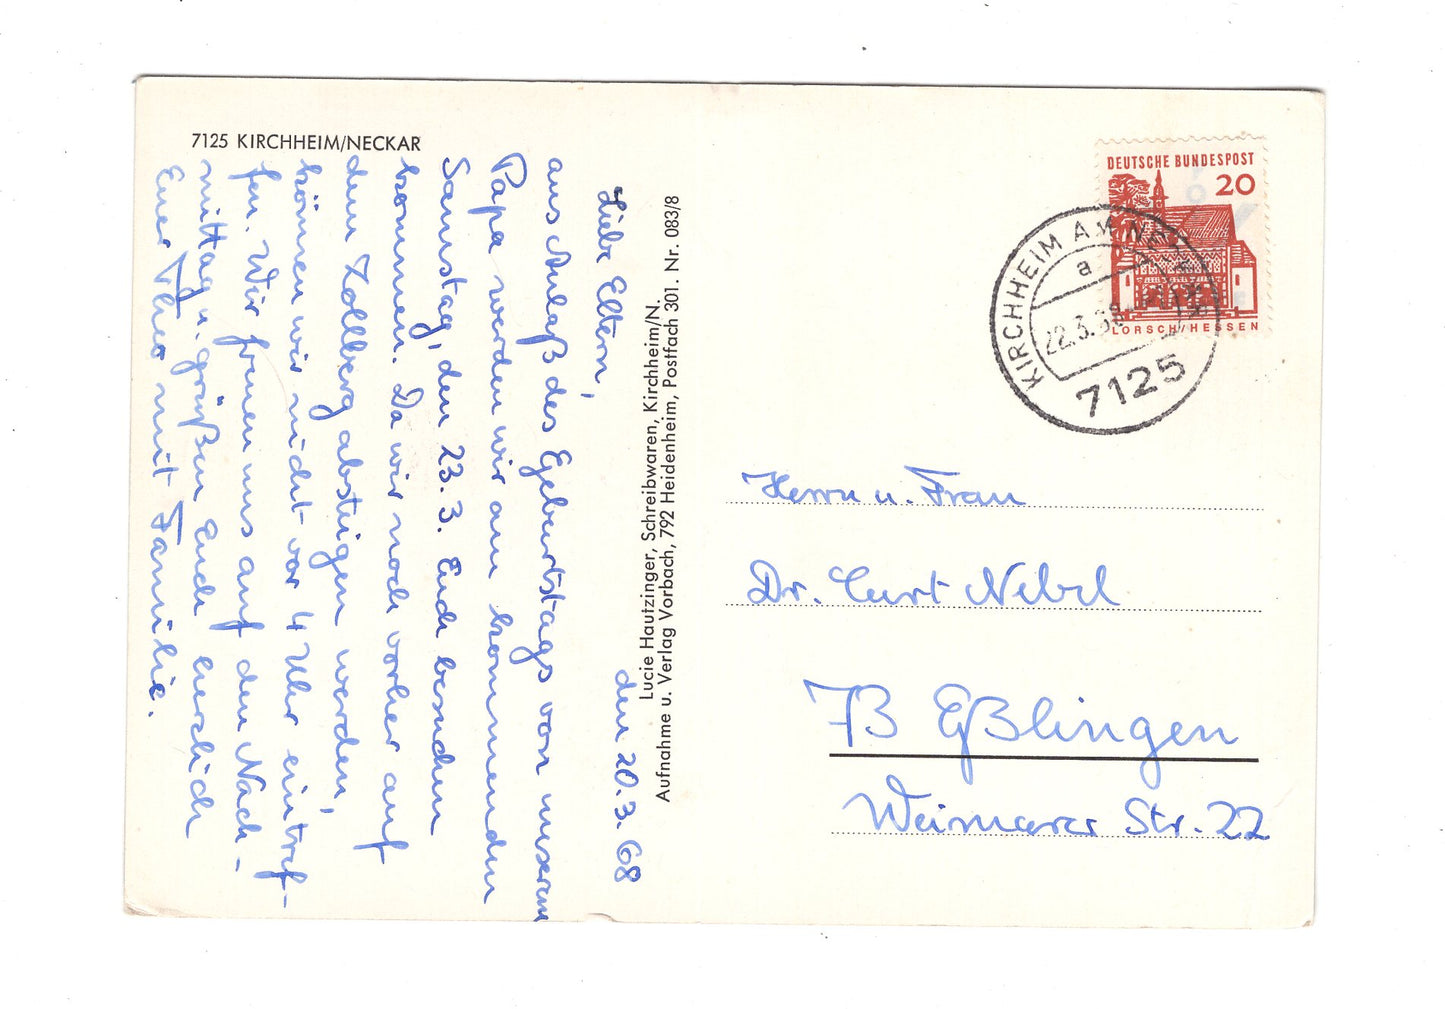 7125 KIRCHHEIM/NECKAR
den 20.3.68
Liebe Eltern,
aus Anlaß des Geburtstags von unserem
Papa werden wir am kommenden
Samstag, den 23.3. Euch besuchen
kommen. Da wir noch vorher auf
dem Zollberg absteigen werden,
können wir nicht vor 4 Uhr eintref-
fen. Wir freuen uns auf den Nach-
mittag u. grüßen Euch herzlich
Euer Theo mit Familie.
Lucie Hautzinger, Schreibwaren, Kirchheim/N.
Aufnahme u. Verlag Vorbach, 792 Heidenheim, Postfach 301. Nr. 083/8
DEUTSCHE BUNDESPOST
20
LORSCH/HESSEN
KIRCHHEIM AM NECKAR
a
22.3.68
7125
Herrn u. Frau
Dr. Curt Nebel
73 Eßlingen
Weimarer Str. 22